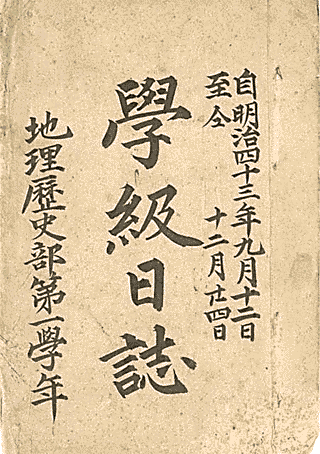 自明治四十三年九月十二日
至仝 十二月廿四日
學級日誌
地理歷史部第一學年